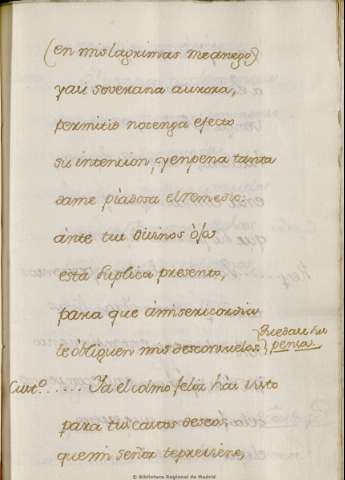 (en mis lagrimas me anego)
y aú soverana aurora,
permitió no tenga efecto
su intencion, y en pena tanta
dame piadosa el remedio:
ánte tus Divinos ójos
está suplica presento,
para que á misericordia
te obliguen mis desconsuelos. }Quedase sus
pensa.
Custo....... Ya el colmo feliz hás visto
para tus castos deseos,
que mi señor te previene,
© Biblioteca Regional de Madrid